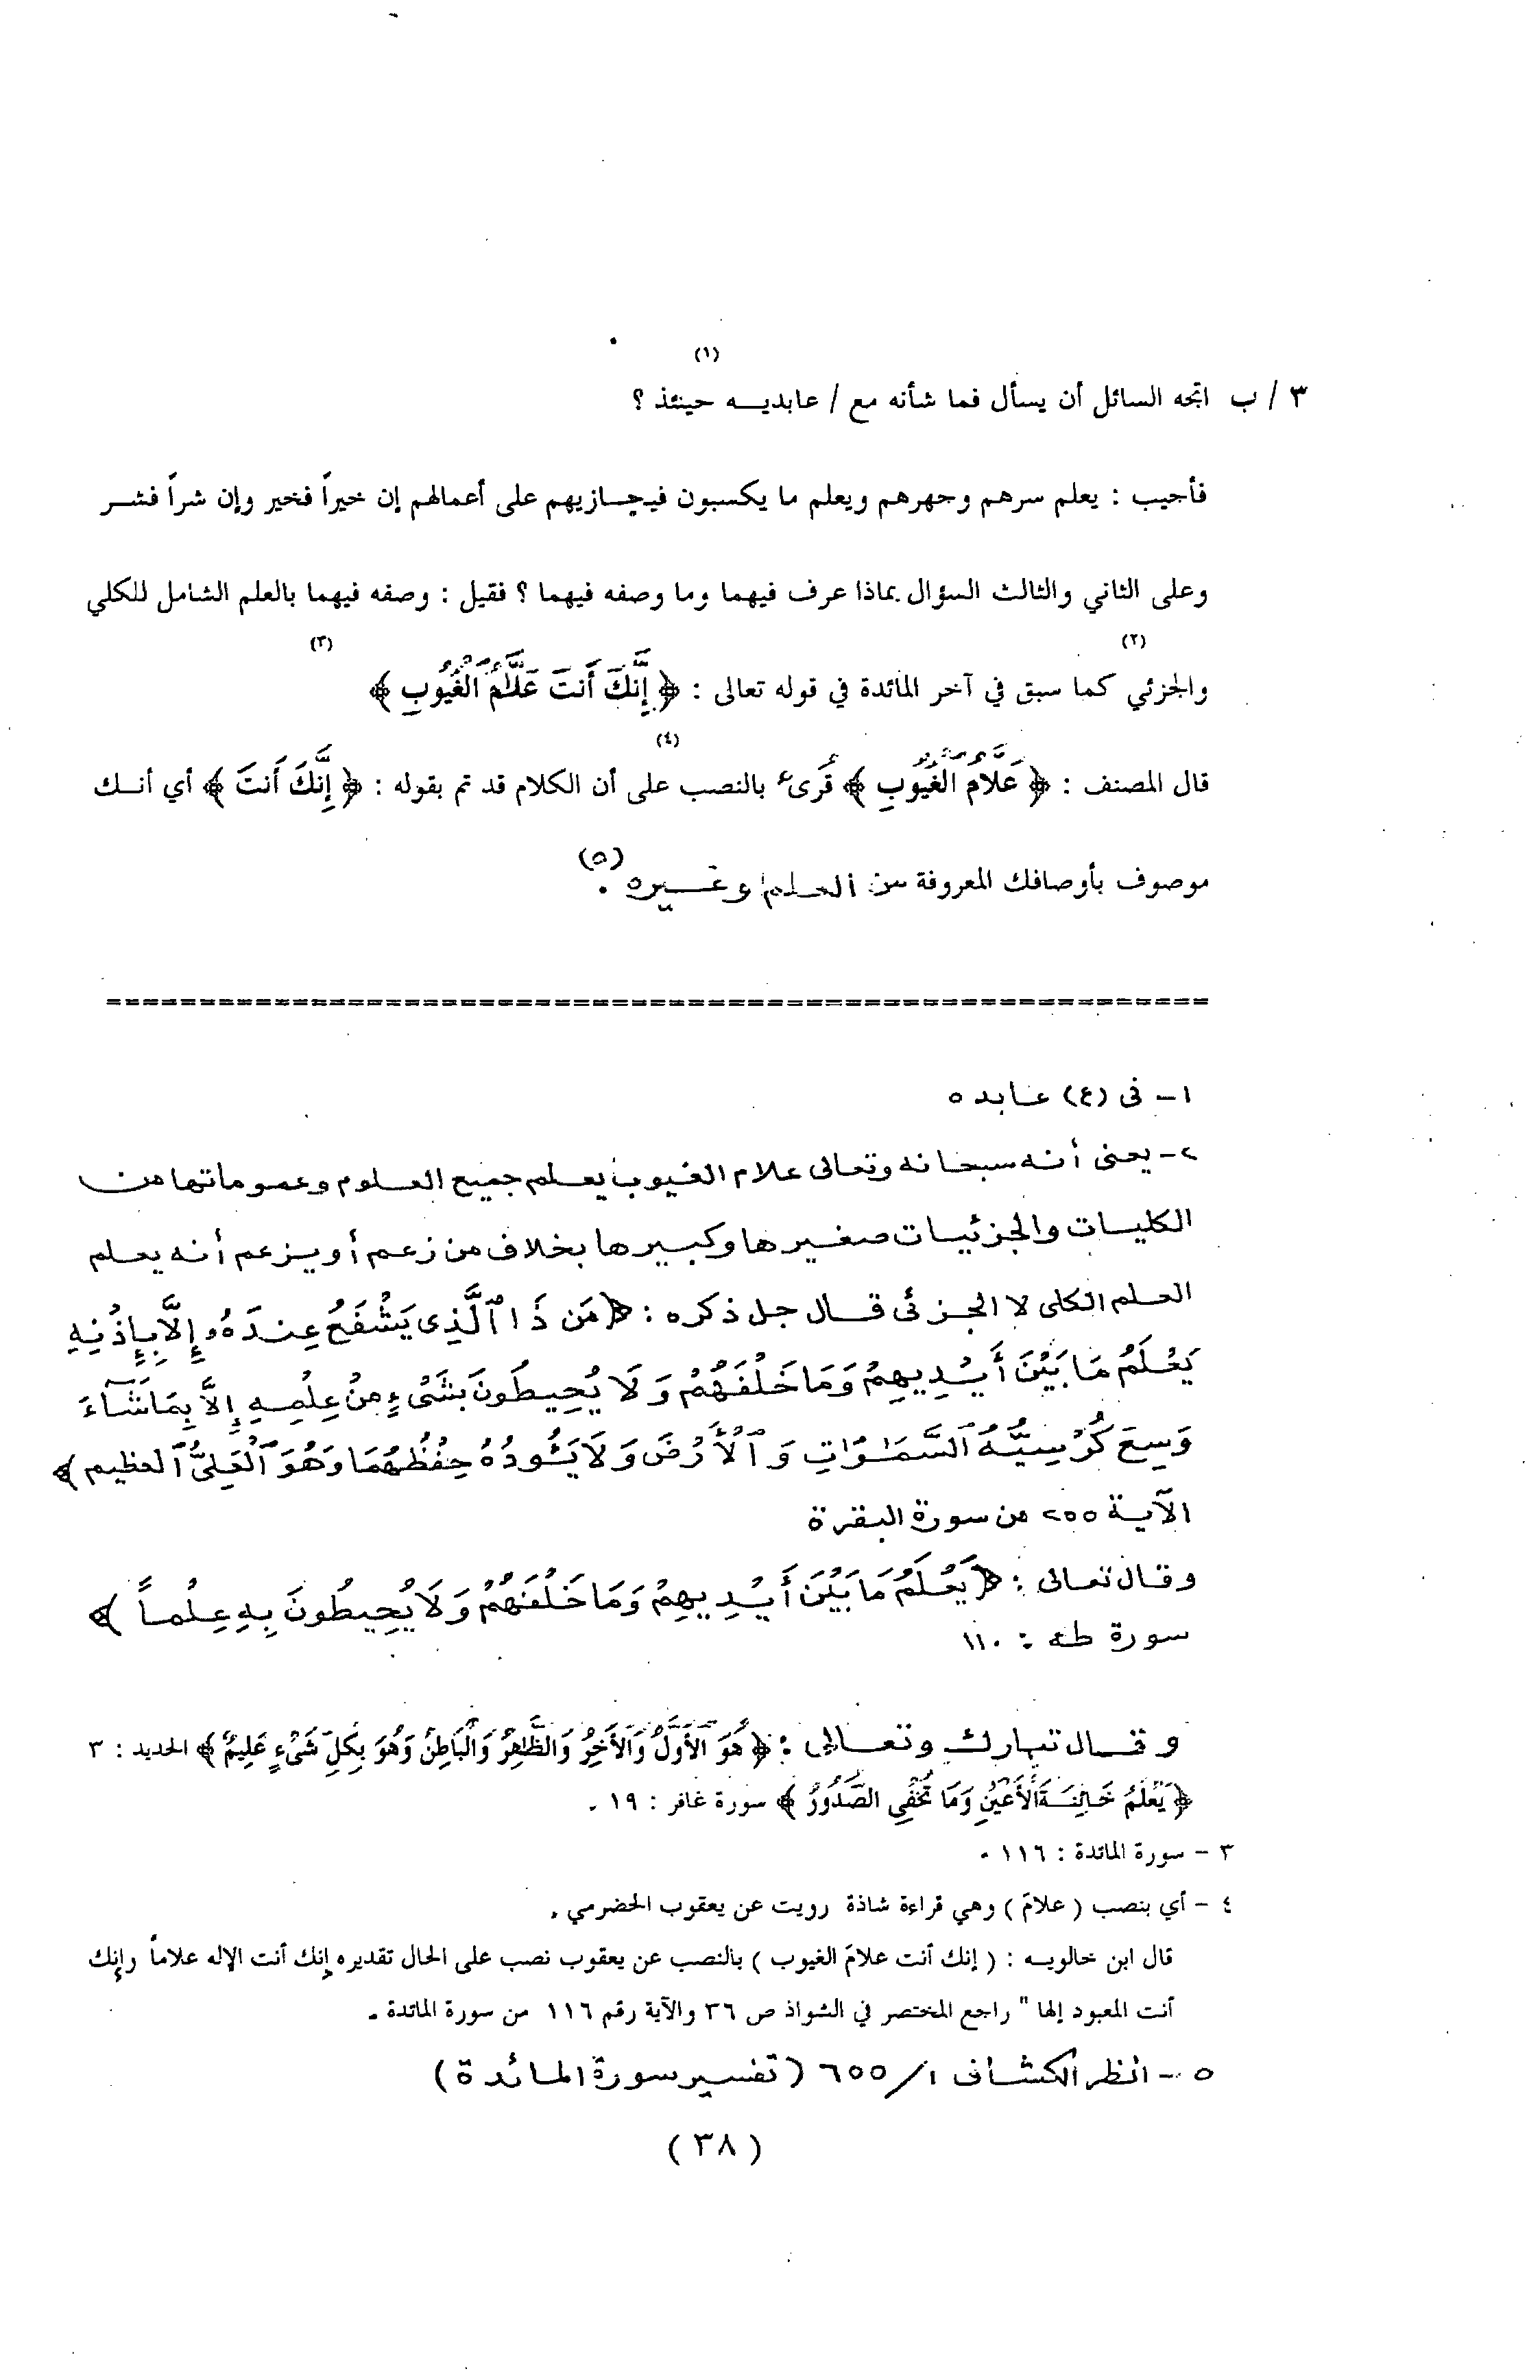 (١)
٣ / ب اتجه السائل أن يسأل فما شأنه مع / عابديـــه حينئذ ؟
فأجيب : يعلم سرهم وجهرهم ويعلم ما يكسبون فيجـــازيهم على أعمالهم إن خيراً فخير وإن شراً فشـــر
وعلى الثاني والثالث السؤال بماذا عرف فيهما وما وصفه فيهما ؟ فقيل : وصفه فيهما بالعلم الشامل للكلي
(٢) (٣)
والجزئي كما سبق في آخر المائدة في قوله تعالى : ﴿ إِنَّكَ أَنتَ عَلَّٰمُ الْغُيُوبِ ﴾
(٤)
قال المصنف : ﴿ عَلَّامَ الْغُيُوبِ ﴾ قُرىء بالنصب على أن الكلام قد تم بقوله : ﴿ إِنَّكَ أَنتَ ﴾ أي أنـــك
موصوف بأوصافك المعروفة من العلم وغيره (٥) .
==========================================================
١ - في (ع) عابده
٢ - يعنى أنه سبحانه وتعالى علام الغيوب يعلم جميع العلوم وعموماتها من
الكليات والجزئيات صغيرها وكبيرها بخلاف من زعم أو يزعم أنه يعلم
العلم الكلى لا الجزئى قال جل ذكره : ﴿ مَن ذَا ٱلَّذِى يَشْفَعُ عِندَهُۥ إِلَّا بِإِذْنِهِ
يَعْلَمُ مَا بَيْنَ أَيْدِيهِمْ وَمَا خَلْفَهُمْ وَلَا يُحِيطُونَ بِشَىْءٍ مِنْ عِلْمِهِ إِلاَّ بِمَا شَآءَ
وَسِعَ كُرْسِيُّهُ ٱلسَّمَٰوَٰتِ وَٱلْأَرْضَ وَلَا يَئُودُهُ حِفْظُهُمَا وَهُوَ ٱلْعَلِىُّ ٱلعظيم ﴾
الآية ٢٥٥ من سورة البقرة
وقال تعالى : ﴿ يَعْلَمُ مَا بَيْنَ أَيْدِيهِمْ وَمَا خَلْفَهُمْ وَلَا يُحِيطُونَ بِهِ عِلْماً ﴾
سورة طه : ١١٠
وقال تبارك وتعالى : ﴿ هُوَ الْأَوَّلُ وَالْأَخِرُ وَالظَّاهِرُ وَالْبَاطِنُ وَهُوَ بِكُلِّ شَىْءٍ عَلِيمٌ ﴾ الحديد : ٣
﴿ يَعْلَمُ خَائِنَةَ الْأَعْيُنِ وَمَا تُخْفِي الصُّدُورُ ﴾ سورة غافر : ١٩ .
٣ - سورة المائدة : ١١٦ .
٤ - أي بنصب ( علامَ ) وهي قراءة شاذة رويت عن يعقوب الحضرمي .
قال ابن خالويـــه : ( إنك أنت علامَ الغيوب ) بالنصب عن يعقوب نصب على الحال تقديره إنك أنت الإله علاماً وإنك
أنت المعبود إلها " راجع المختصر في الشواذ ص ٣٦ والآية رقم ١١٦ من سورة المائدة .
٥ - انظر الكشاف ١ / ٦٥٥ ( تفسير سورة المائدة )
( ٣٨ )